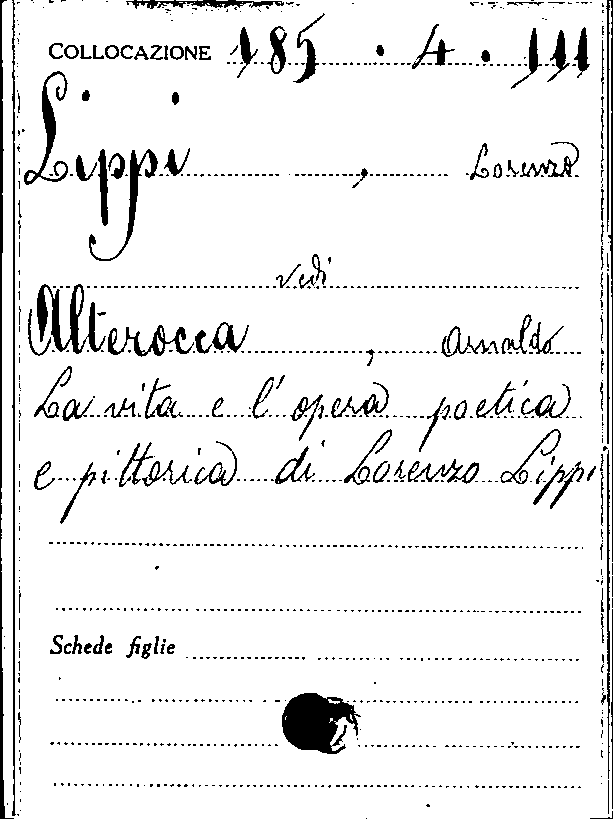 COLLOCAZIONE 185 . 4 . 111
Lippi , Lorenzo
vedi
Alterocca , Arnaldo
La vita e l'opera poetica
e pittorica di Lorenzo Lippi
Schede figlie